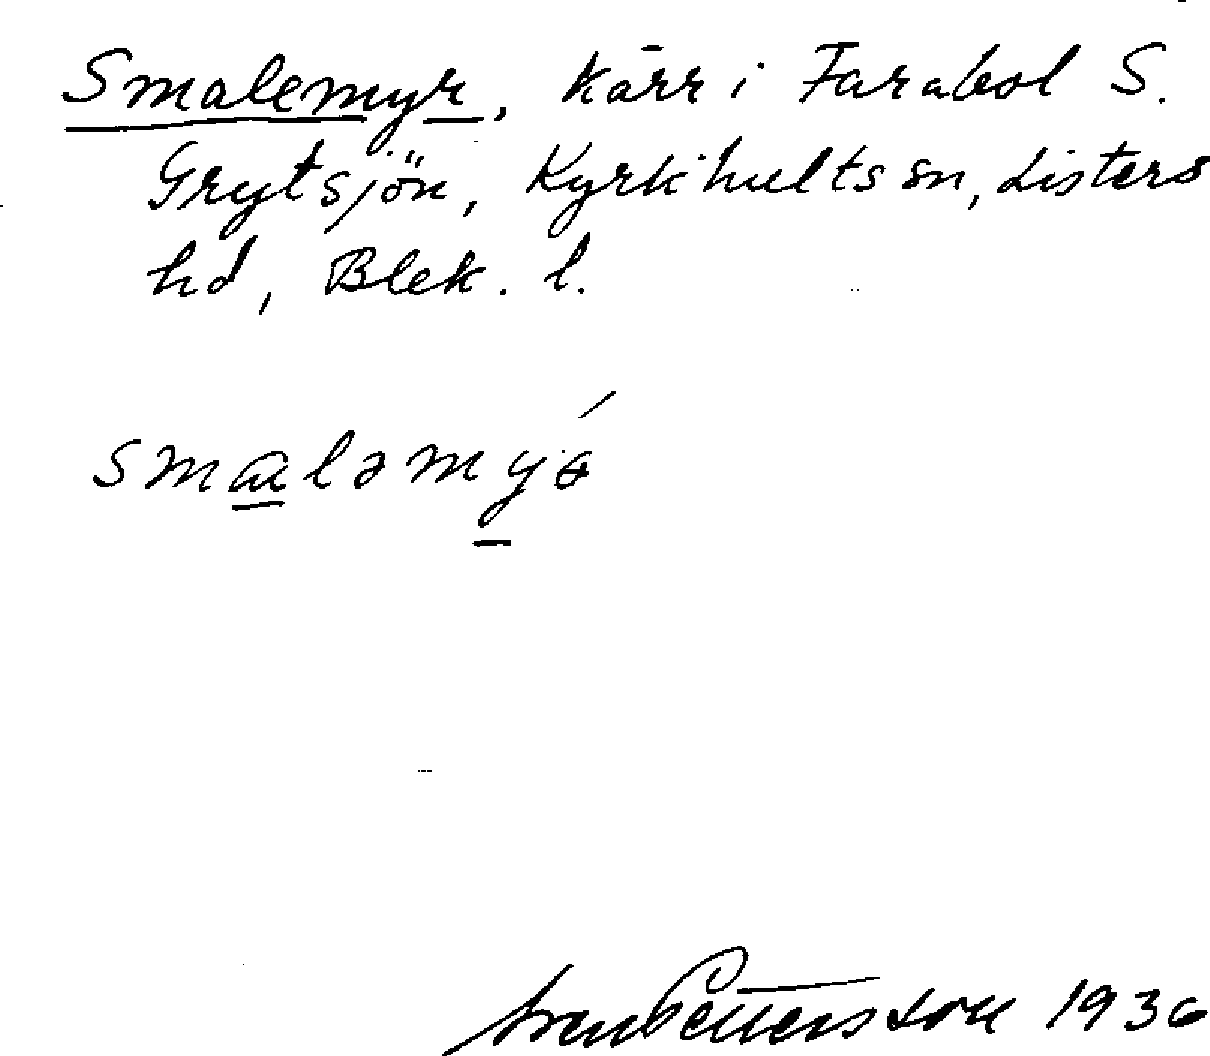 Smalemyr, kärr i Farabol S.
Grytsjön, Kyrkhults sn, Listers
hd, Blek. l.
smaləmyɞ́
Sven Pettersson 1936